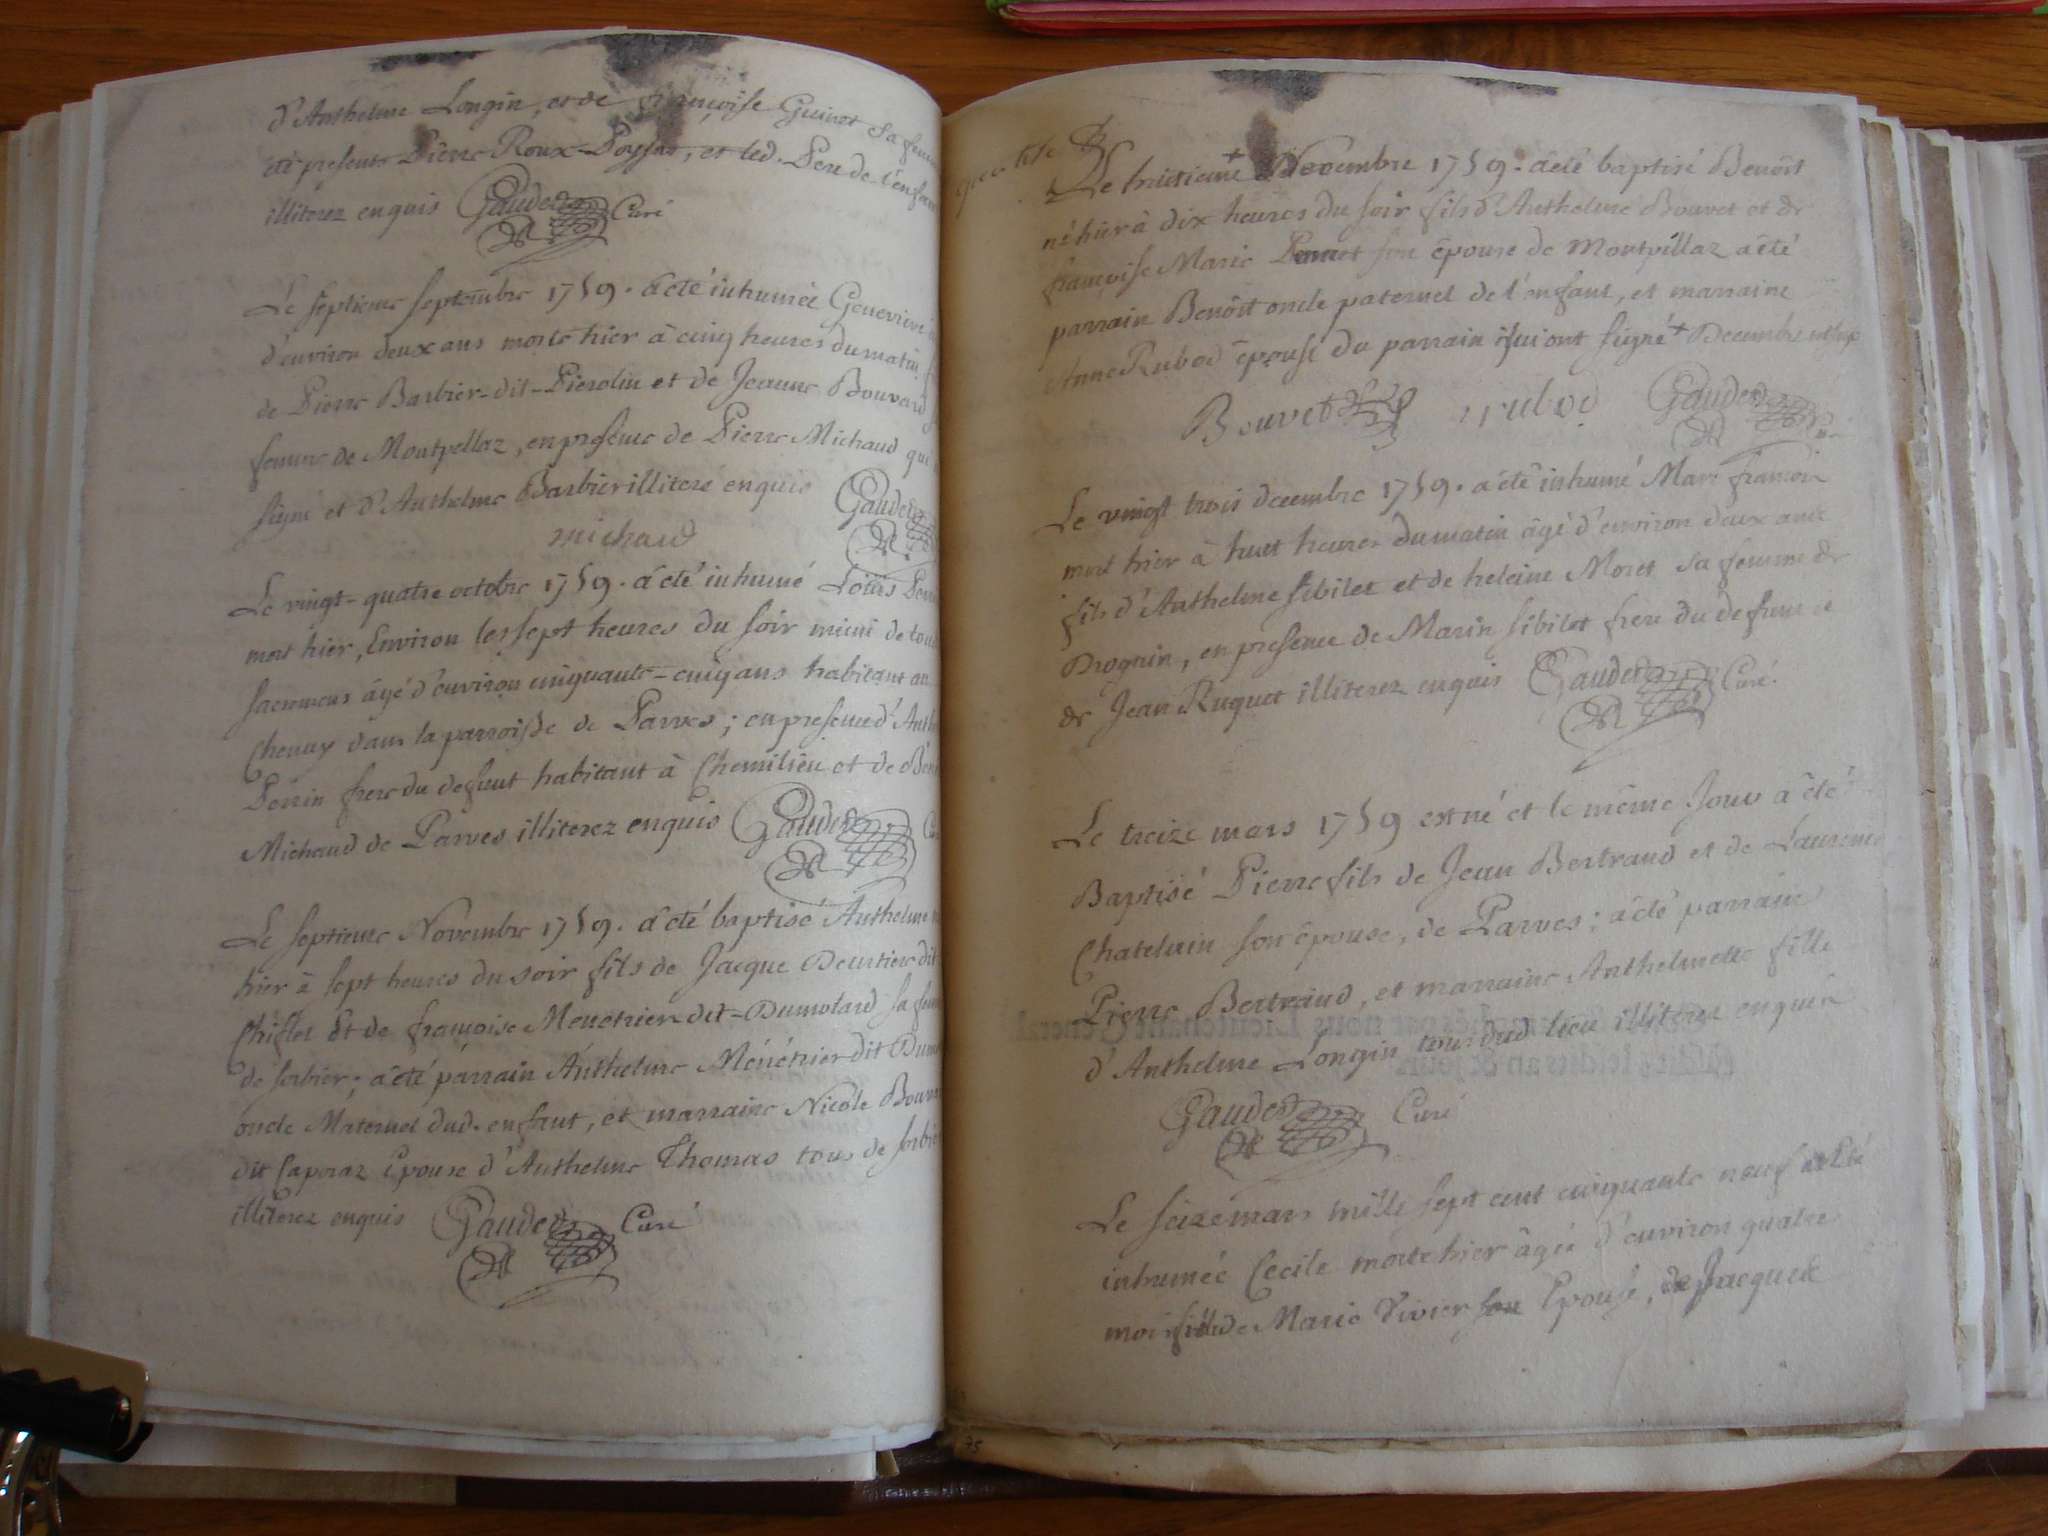 d'Anthelme Longin, et de françoise Guinet Sa femme
été presents Pierre Roux-Poysat, et led. Pere de l'enfant
illiterez enquis Gaudet Curé
Le septieme septembre 1759. a été inhumée Genevieve
d'environ deux ans morte hier à cinq heures du matin
de Pierre Barbier-dit-Pierolin et de Jeanne Bouvard
femme de Montpellaz, en presence de Pierre Michaud qui
signé et d'Anthelme Barbier illiteré enquis Gaudet
michaud
Le vingt-quatre octobre 1759. a été inhumé Loüis
mort hier, Environ les sept heures du soir muni de tous
sacremens âgé d'environ cinquante-cinq ans habitant au
Cheuuy dans la parroisse de Parves; en presence d'
Perrin frere du defunt habitant à Chemilieu et de
Michaud de Parves illiterez enquis Gaudet
Le septieme Novembre 1759. a été baptisé Anthelme
hier à sept heures du soir fils de Jacque Deurtier dit
Chiflet Et de françoise Menétrier dit-Dumolard sa femme
de sorbier; a été parrain Anthelme Ménétrier dit
oncle Maternel dud. enfant, et marraine Nicole
dit Caporaz Epouse d'Anthelme Thomas tous de sorbier
illiterez enquis Gaudet Curé
Le huitieme + Novembre 1759. a été baptisé Benoît
né hier à dix heures du soir fils d'Anthelme Bouvet et de
françoise Marie son épouse de Montpillaz a été
parrain Benôit oncle paternel de l'enfant, et marraine
Anne Rubod épouse du parrain qui ont signé + Decembre
Bouvet rubod Gaudet
Le vingt trois decembre 1759. a été inhumé Marc françois
mort hier à huit heures du matin âgé d'environ deux ans
fils d'Anthelme sibilet et de heleine Moret sa femme de
Drognin, en presence de Marin sibilet frere du defunt et
de Jean Ruquet illiterez enquis Gaudet Curé.
Le treize mars 1759 est né et le même Jour a été
Baptisé Pierre fils de Jean Bertrand et de Laurence
Chatelain son épouse, de Parves; a été parrain
Pierre Bertrand, et marraine Anthelmette fille
d'Anthelme Longin tous dud lieu illiterez enquis
Gaudet Curé
Le seize mars mille sept cent cinquante neuf a été
inhumée Cecile morte hier âgée d'environ quatre
mois fille de Marie Vivier son Epouse, de Jacques
75